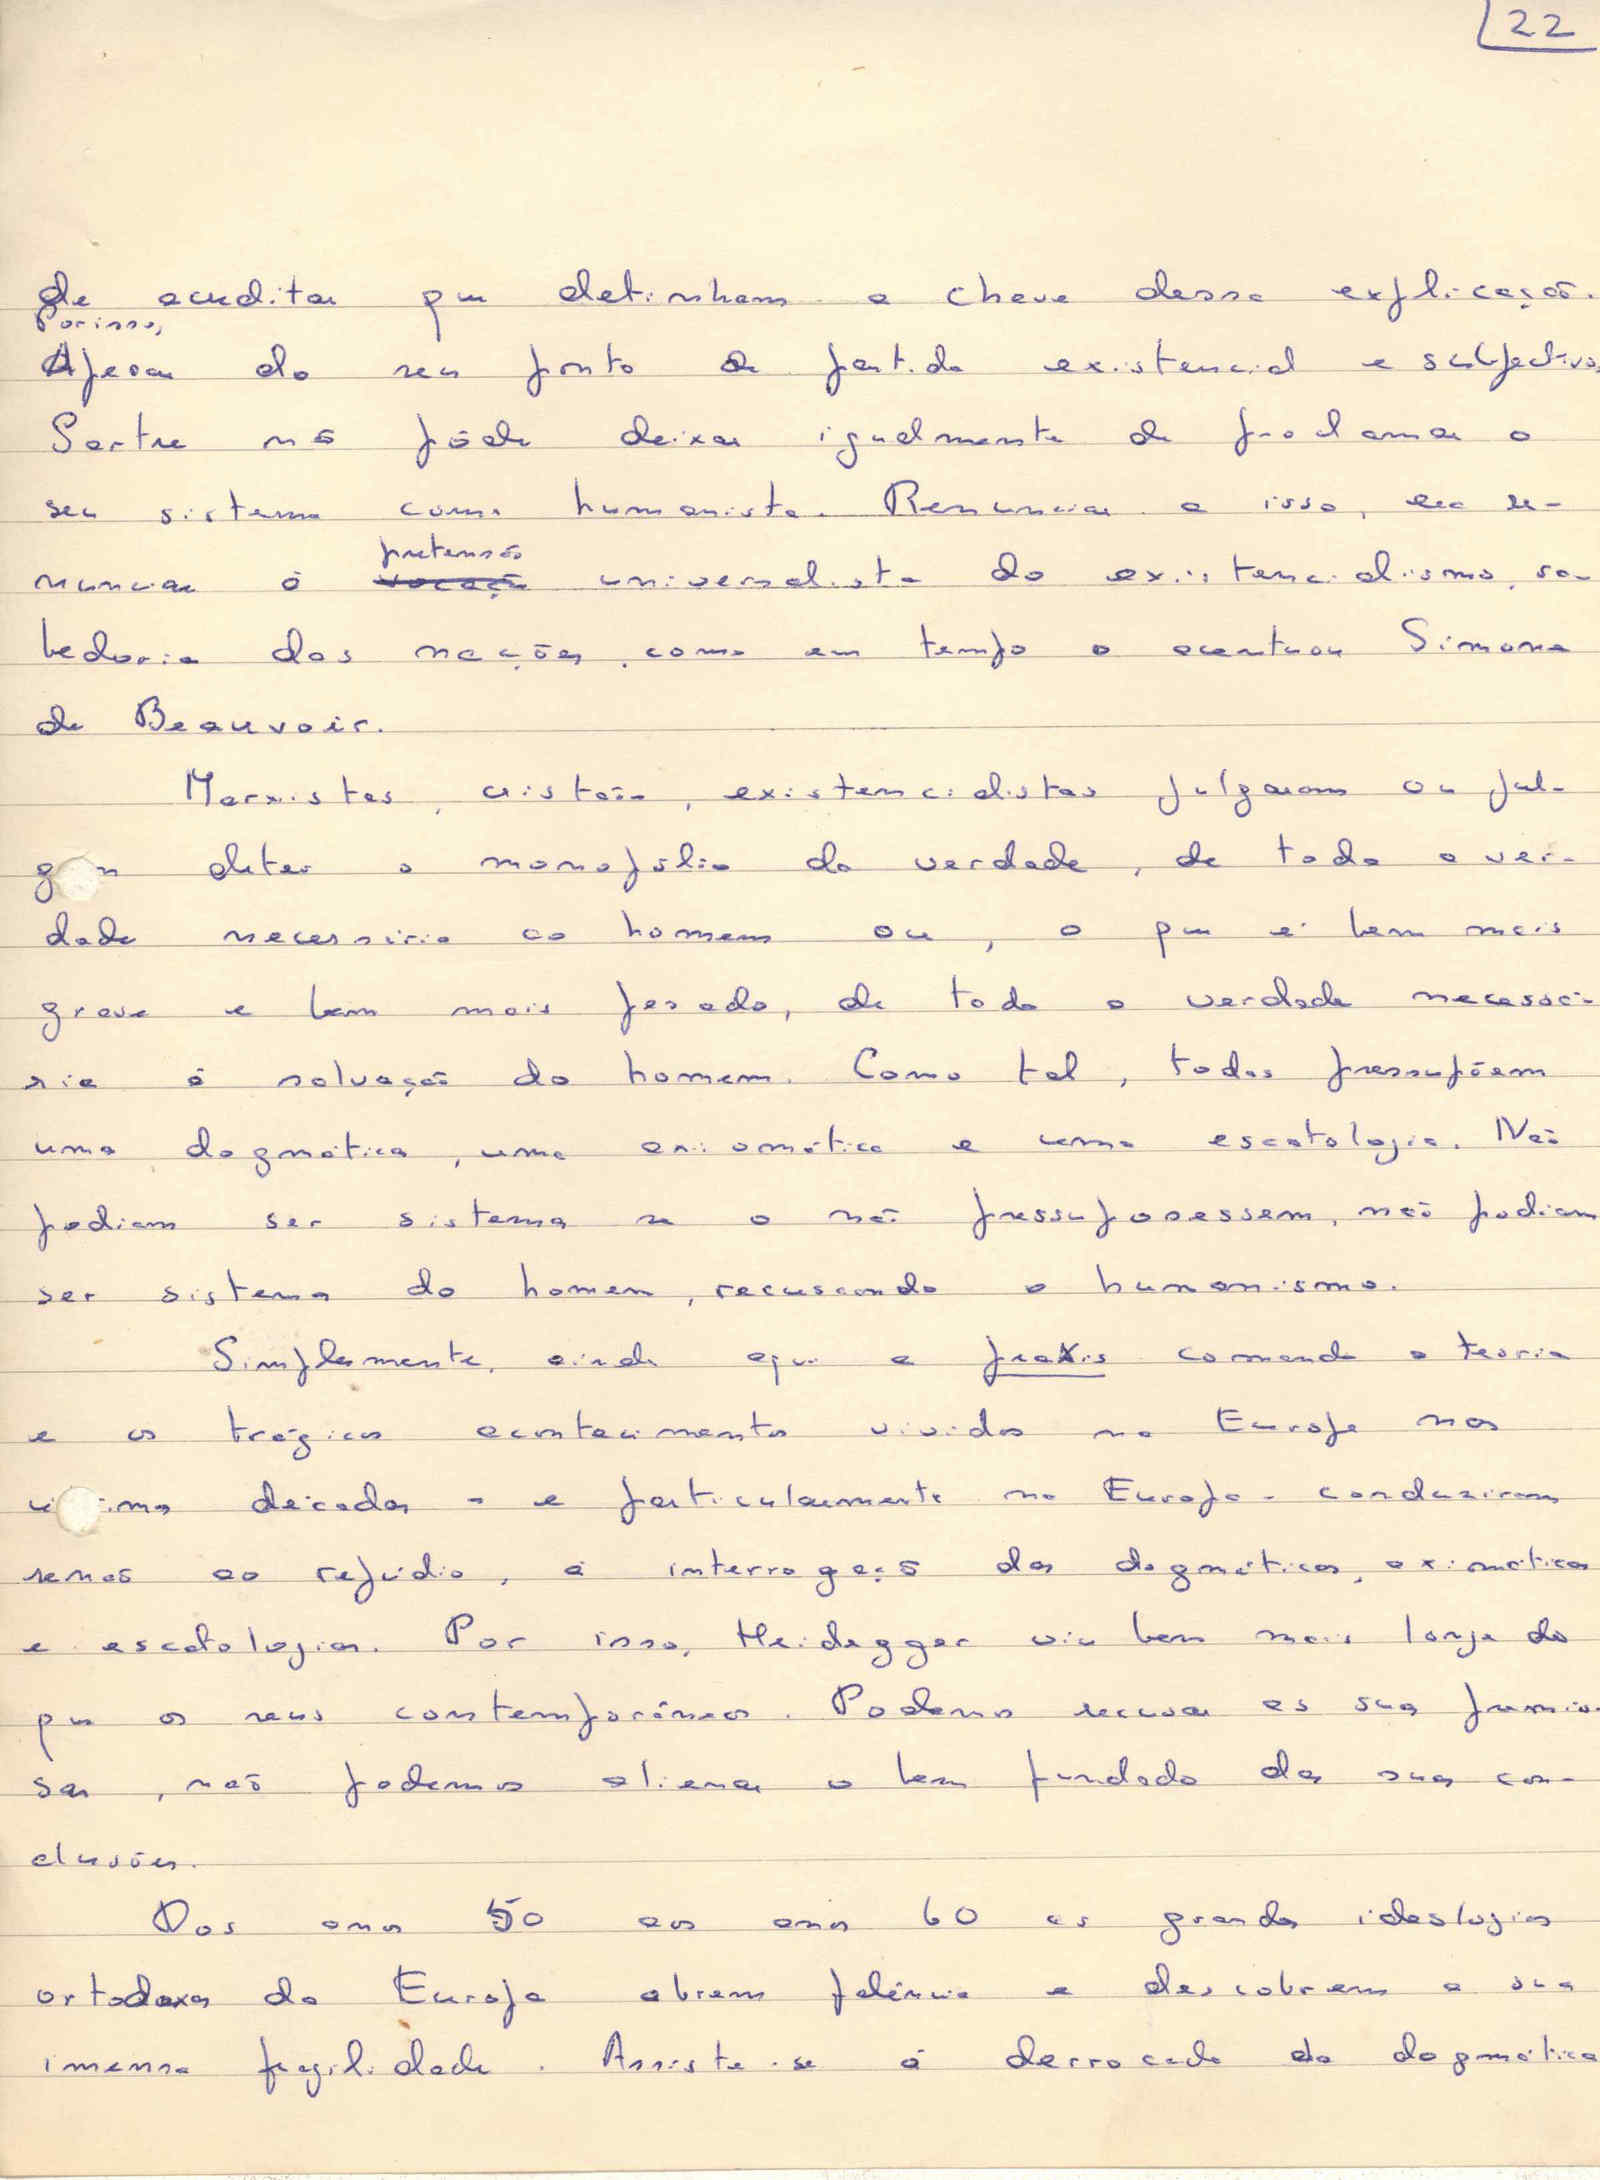 22
de acreditar que detinham a chave dessa explicação.
Por isso,
Apesar do seu ponto de partida existencial e subjectivo,
Sartre não pôde deixar igualmente de proclamar o
seu sistema como humanista. Renunciar a isso, era re-
pretensão
nunciar à vocação universalista do existencialismo, sa-
bedoria das nações, como em tempo o acentuou Simone
de Beauvoir.
Marxistas, cristãos, existencialistas julgaram ou jul-
gam deter o monopólio da verdade, de toda a ver-
dade necessária ao homem ou, o que é bem mais
grave e bem mais pesado, de toda a verdade necessá-
ria à salvação do homem. Como tal, todos pressupõem
uma dogmática, uma axiomática e uma escatologia. Não
podiam ser sistema se o não pressuposessem, não podiam
ser sistema do homem, recusando o humanismo.
Simplesmente, ainda aqui a praxis comanda a teoria
e os trágicos acontecimentos vividos na Europa nas
últimas décadas - e particularmente na Europa - conduziram
senão ao repúdio, à interrogação das dogmáticas, aximáticas
e escatologias. Por isso, Heidegger viu bem mais longe do
que os seus contemporâneos. Podemos recusar as suas premis-
sas, não podemos alienar o bem fundado das suas con-
clusões.
Dos anos 50 aos anos 60 as grandes ideologias
ortodoxas da Europa abrem falência e descobrem a sua
imensa fragilidade. Assiste-se à derrocada da dogmática